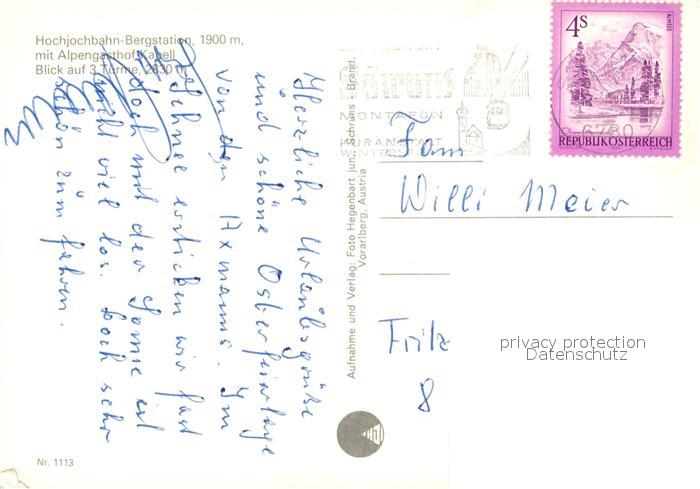 Hochjochbahn-Bergstation, 1900 m,
mit Alpengasthof Kapell
Blick auf 3 Türme, 2830 m
Herzliche Urlaubsgrüße
und schöne Osterfeiertage
von den Axmanns. Im
Schnee ersticken wir fast
doch mit der Sonne ist
nicht viel los. Doch sehr
schön zum fahren.
Nr. 1113
Aufnahme und Verlag: Foto Hegenbart jun., Schruns - Brand,
Vorarlberg, Austria
Schruns
MONTAFON
KURANSTALT
WINTER
6780
4S
ALMSEE
REPUBLIK ÖSTERREICH
Fam
Willi Meier
Fritz
8
privacy protection
Datenschutz